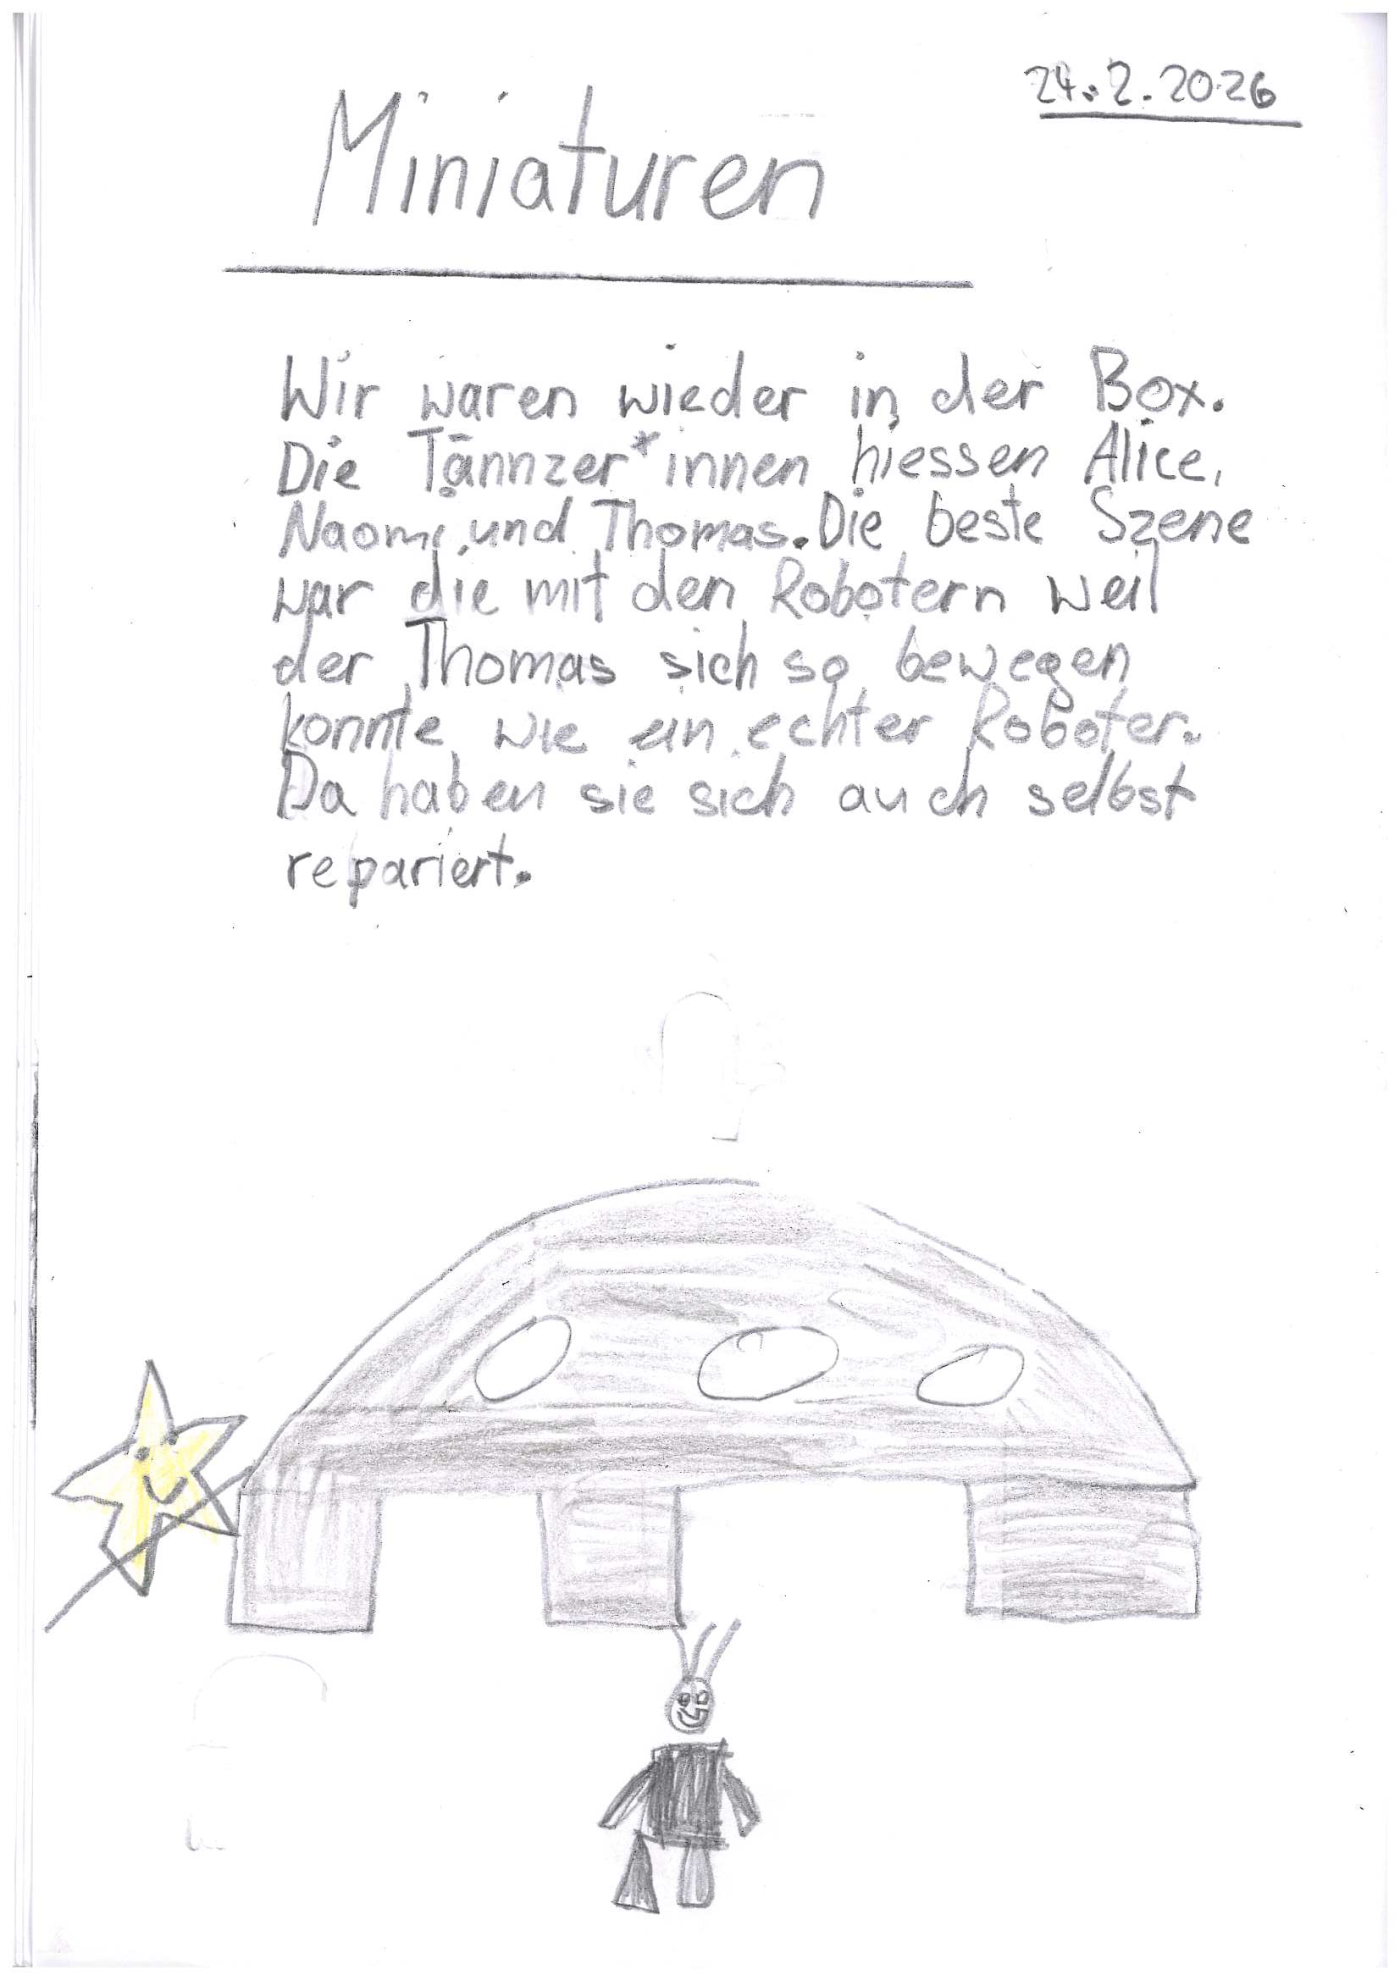 24.2.2026
Miniaturen
Wir waren wieder in der Box.
Die Tännzer*innen hiessen Alice,
Naomi und Thomas. Die beste Szene
war die mit den Robotern weil
der Thomas sich so bewegen
konnte wie ein echter Roboter.
Da haben sie sich auch selbst
repariert.